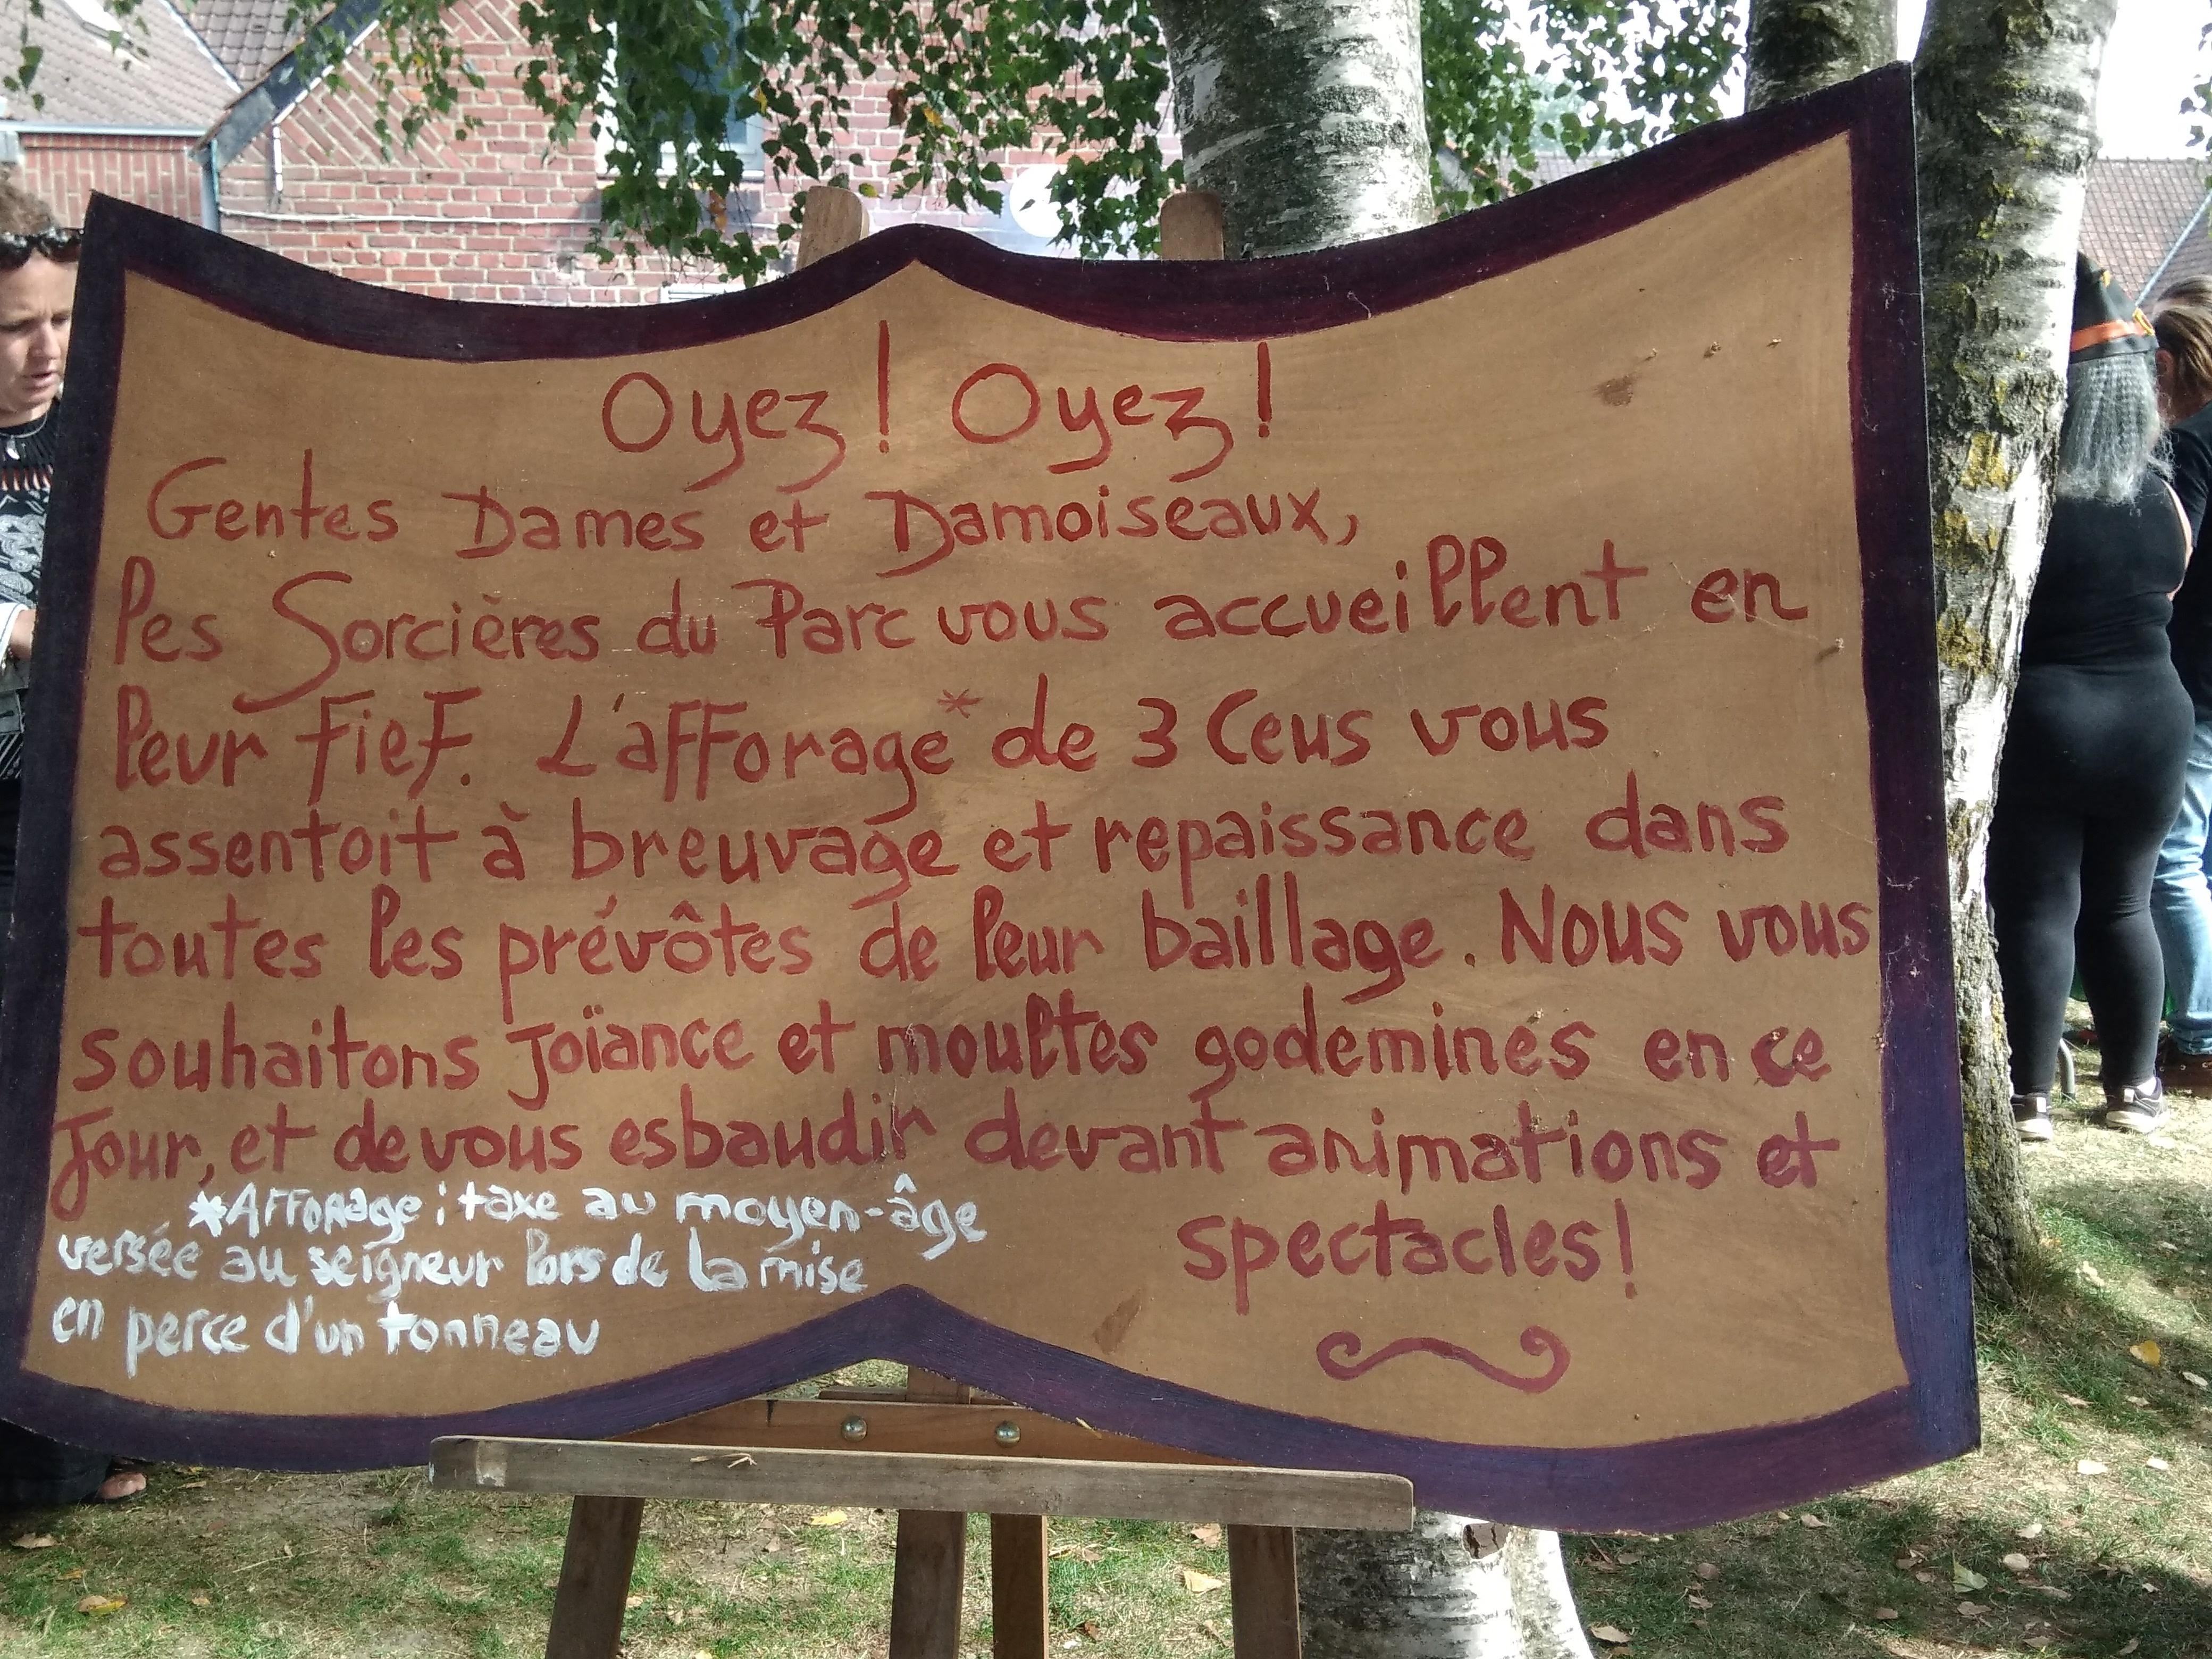 Oyez! Oyez!
Gentes Dames et Damoiseaux,
les Sorcières du Parc vous accueillent en
leur fief. L'afforage* de 3 Ceus vous
assentoit à breuvage et repaissance dans
toutes les prévôtes de leur baillage. Nous vous
souhaitons joïance et moultes godeminés en ce
jour, et de vous esbaudir devant animations et
spectacles!
*Afforage: taxe au moyen-âge
versée au seigneur lors de la mise
en perce d'un tonneau